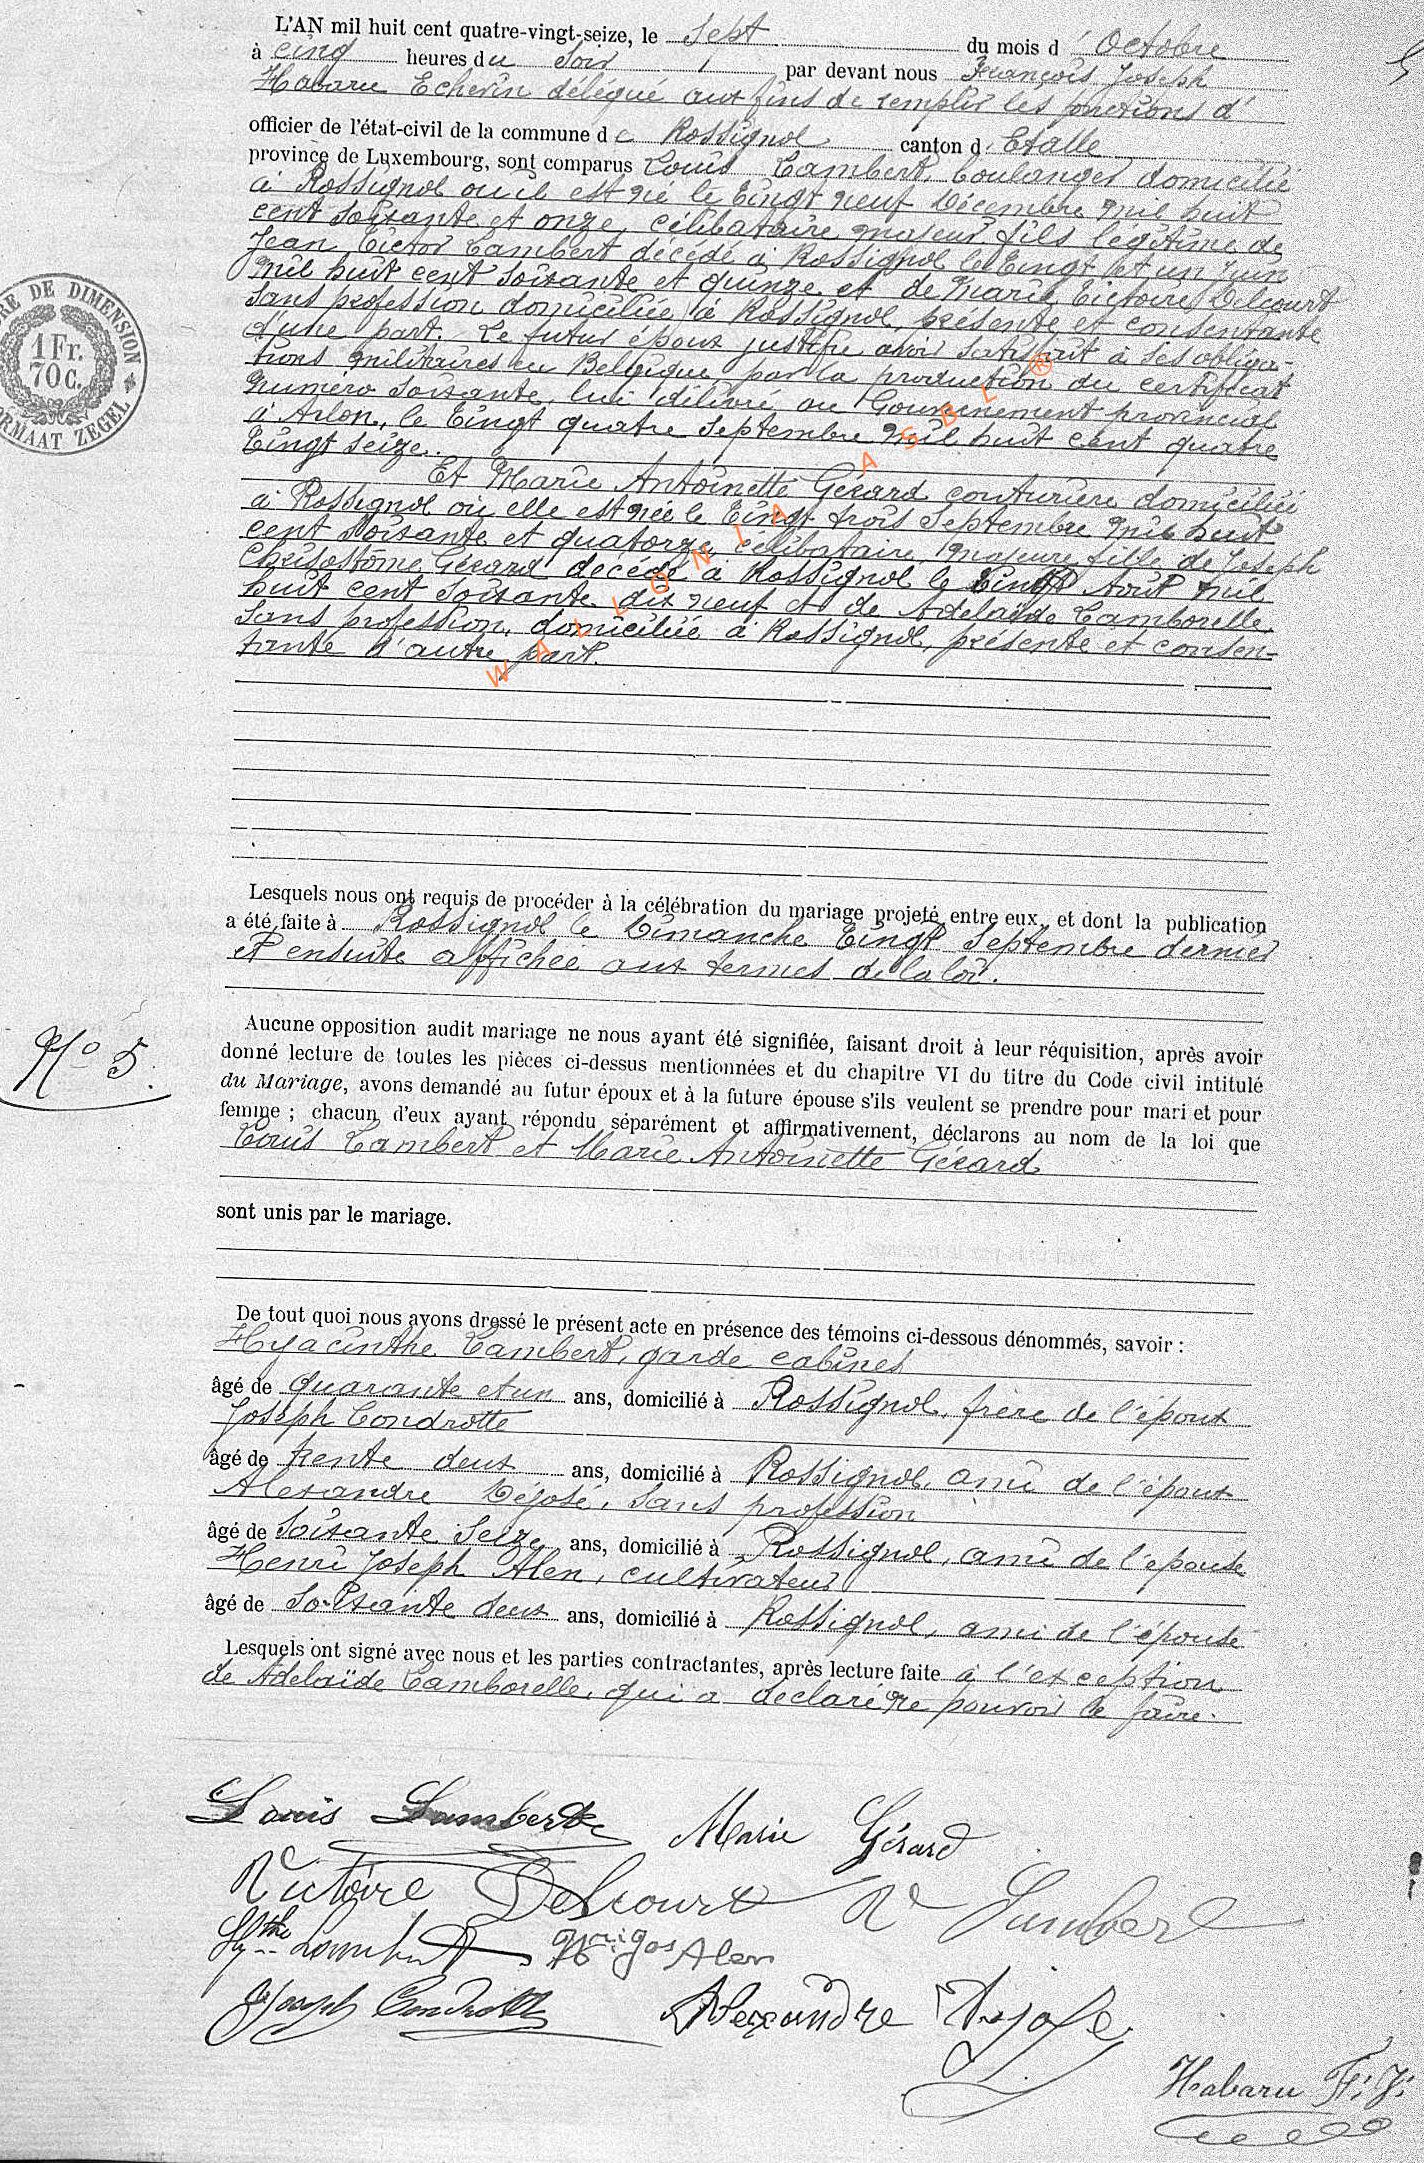 L'AN mil huit cent quatre-vingt-seize, le Sept du mois d' Octobre
à cinq heures du Soir par devant nous François Joseph
Habaru Echevin délégué aux fins de remplir les fonctions d'
officier de l'état-civil de la commune de Rossignol canton d' Etalle
province de Luxembourg, sont comparus Louis Lambert, boulanger domicilié
à Rossignol où il est né le Vingt neuf Décembre mil huit
cent soixante et onze, célibataire majeur, fils légitime de
Jean Victor Lambert décédé à Rossignol le Vingt et un Juin
mil huit cent soixante et quinze et de Marie Victoire Delcourt
sans profession domiciliée à Rossignol, présente et consentante
d'une part. Le futur époux justifie avoir satisfait à ses obliga-
tions militaires en Belgique par la production du certificat
numéro soixante, lui délivré au Gouvernement provincial
à Arlon, le Vingt quatre Septembre mil huit cent quatre
Vingt seize.
Et Marie Antoinette Gérard couturière domiciliée
à Rossignol où elle est née le Vingt trois Septembre mil huit
cent soixante et quatorze, célibataire, majeure, fille de Joseph
Chrisostôme Gérard décédé à Rossignol le Vingt Août mil
huit cent soixante dix neuf et de Adelaïde Lamborelle,
sans profession, domiciliée à Rossignol, présente et consen-
tante d'autre part.
WALLONIA ASBL ®
RE DE DIMENSION
1 Fr.
70 C.
ORMAAT ZEGEL
Lesquels nous ont requis de procéder à la célébration du mariage projeté entre eux, et dont la publication
a été faite à Rossignol le Dimanche Vingt Septembre dernier
et ensuite affichée aux termes de la loi.
Aucune opposition audit mariage ne nous ayant été signifiée, faisant droit à leur réquisition, après avoir
donné lecture de toutes les pièces ci-dessus mentionnées et du chapitre VI du titre du Code civil intitulé
du Mariage, avons demandé au futur époux et à la future épouse s'ils veulent se prendre pour mari et pour
femme ; chacun d'eux ayant répondu séparément et affirmativement, déclarons au nom de la loi que
Louis Lambert et Marie Antoinette Gérard
N° 5.
sont unis par le mariage.
De tout quoi nous avons dressé le présent acte en présence des témoins ci-dessous dénommés, savoir :
Hyacinthe Lambert, garde cabines
âgé de quarante et un ans, domicilié à Rossignol, frère de l'époux
Joseph Condrotte
âgé de trente deux ans, domicilié à Rossignol, ami de l'époux
Alexandre Déjosé, sans profession
âgé de soixante seize ans, domicilié à Rossignol, ami de l'épouse
Henri Joseph Alen, cultivateur
âgé de soixante deux ans, domicilié à Rossignol, ami de l'épouse
Lesquels ont signé avec nous et les parties contractantes, après lecture faite à l'exception
de Adelaïde Lamborelle, qui a déclaré ne pouvoir le faire.
Louis Lambert Marie Gérard
Victoire Delcourt Lambert
Hythe Lambert Hri Jos Alen
Joseph Condrotte Alexandre Dejose
Habaru F. J.